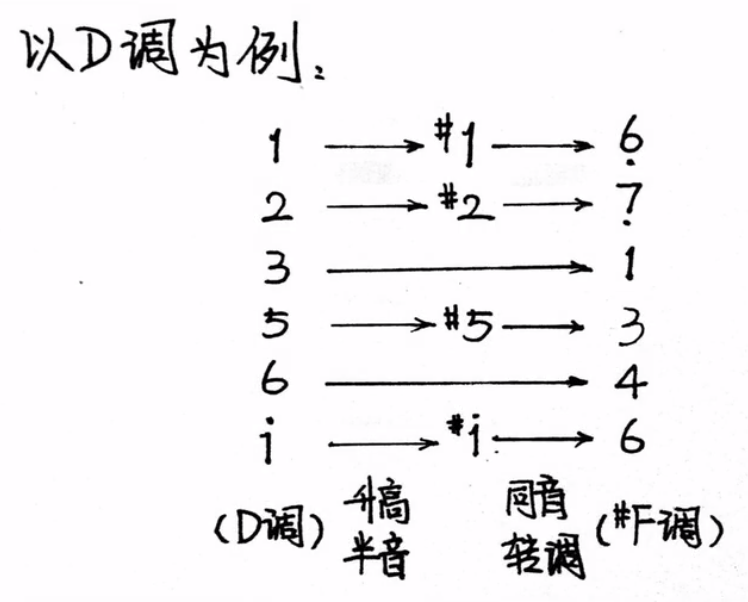 以D调为例：
1 → #1 → 6̣
2 → #2 → 7̣
3 → 1
5 → #5 → 3
6 → 4
i → #i → 6
(D调) 升高半音 同音转调 (#F调)